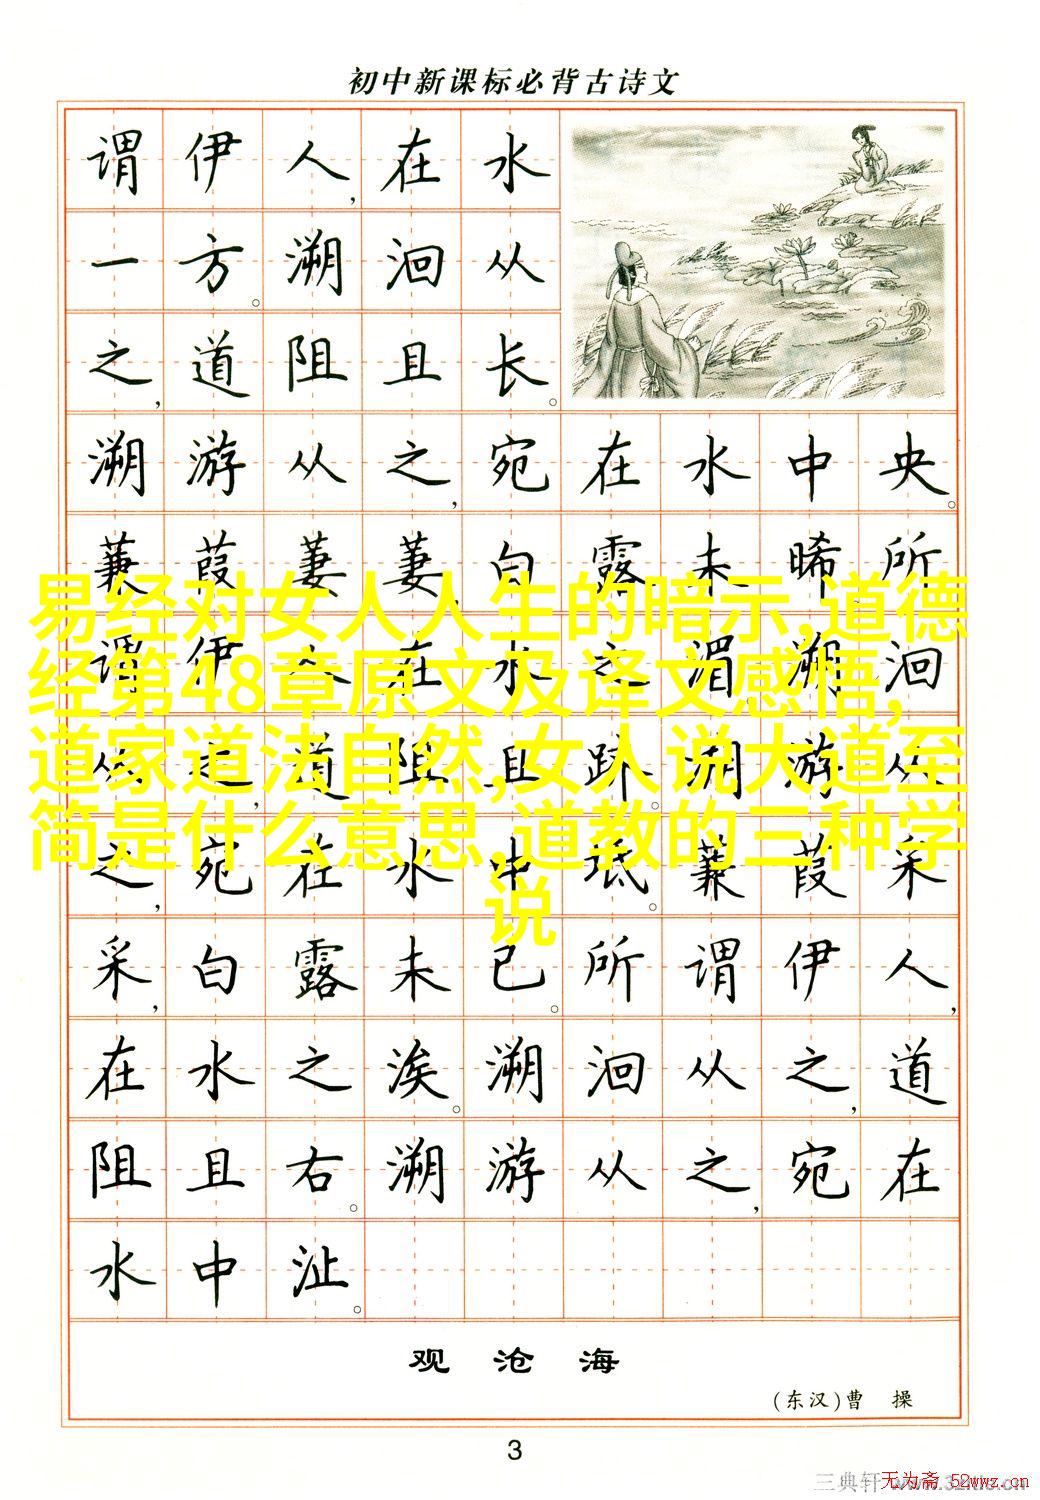 初中新课标必背古诗文
谓伊人,在水
一方。溯洄从
之,道阻且长。
溯游从之,宛在水中央。
蒹葭萋萋,白露未晞。所
谓伊人,在水之湄。溯洄
从之,道阻且跻。溯游从
之,宛在水中坻。蒹葭采
采,白露未已。所谓伊人,
在水之涘。溯洄从之,道
阻且右。溯游从之,宛在
水中沚。
易经对女人人生的暗示,道德
经第48章原文及译文感悟,
道家道法自然,女人说大道至
简是什么意思,道教的三种学
说
观沧海
(东汉)曹 操
3
三典轩
无为斋 52wwz.cn